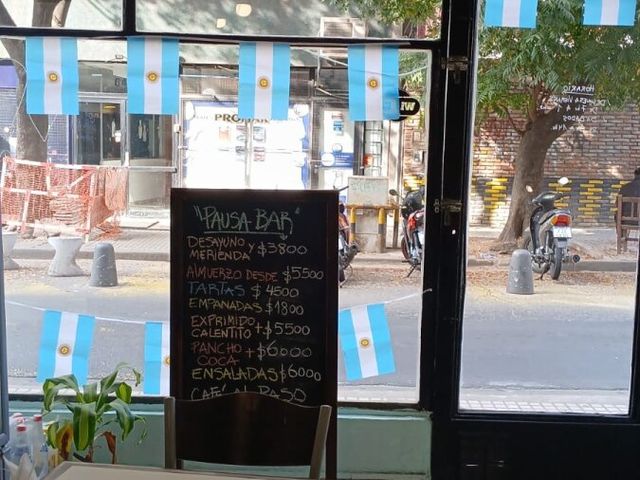 "PAUSA-BAR"
DESAYUNO Y
MERIENDA $3800
ALMUERZO DESDE $5500
TARTAS $4500
EMPANADAS $1800
EXPRIMIDO
CALENTITO + $5500
PANCHO
COCA + $6000
ENSALADAS $6000
CAFÉ AL PASO
HORARIO